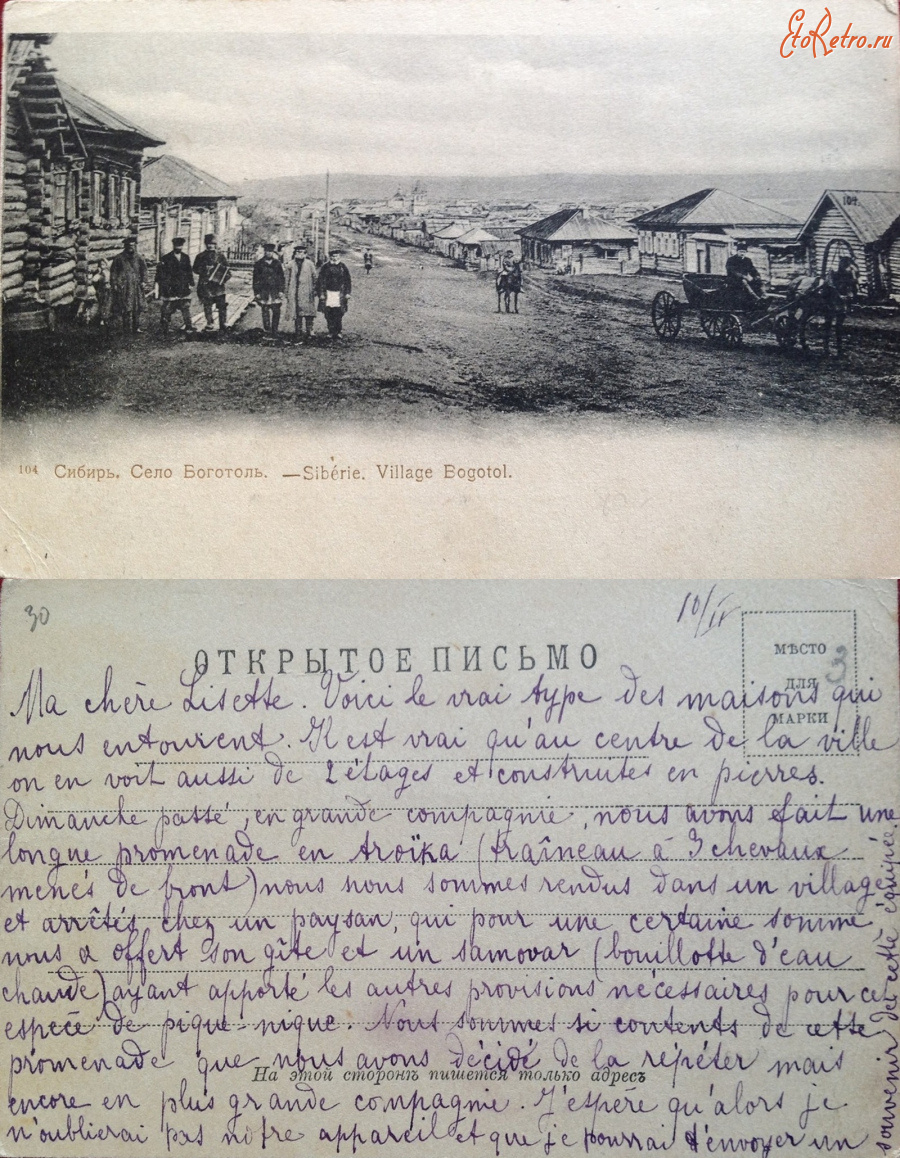 EtoRetro.ru
104
104 Сибирь. Село Боготоль. — Sibérie. Village Bogotol.
30
10/IV
ОТКРЫТОЕ ПИСЬМО
МѢСТО
ДЛЯ
МАРКИ
3
Ma chère Lisette. Voici le vrai type des maisons qui
nous entourent. Il est vrai qu'au centre de la ville
on en voit aussi de 2 étages et construites en pierres.
Dimanche passé, en grande compagnie, nous avons fait une
longue promenade en troïka (traîneau à 3 chevaux
menés de front) nous nous sommes rendus dans un village
et arrêtés chez un paysan, qui pour une certaine somme
nous a offert son gîte et un samovar (bouillotte d'eau
chaude) ayant apporté les autres provisions nécessaires pour cet
espèce de pique-nique. Nous sommes si contents de cette
promenade que nous avons décidé de la répéter mais
На этой сторонѣ пишется только адресъ
encore en plus grande compagnie. J'espère qu'alors je
n'oublierai pas notre appareil et que je pourrai t'envoyer un
souvenir de cette équipée.